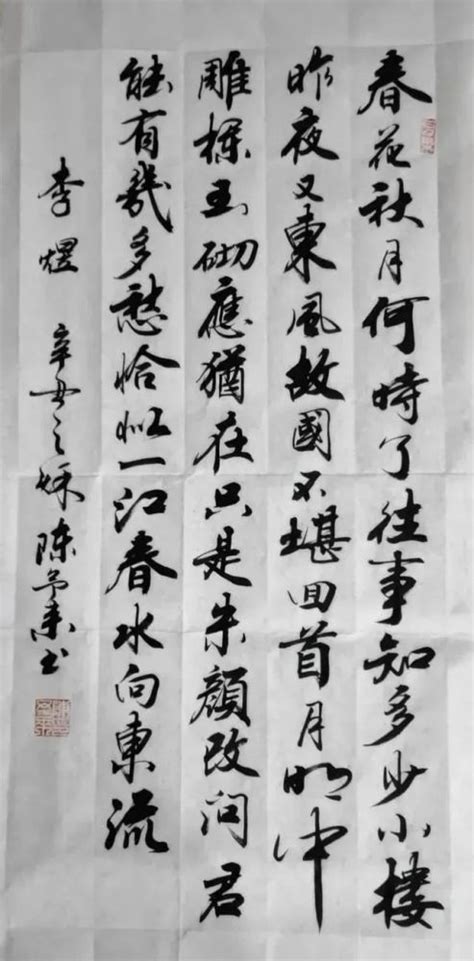 春花秋月何時了往事知多少小樓
昨夜又東風故國不堪回首月明中
雕欄玉砌應猶在只是朱顏改問君
能有幾多愁恰似一江春水向東流
李煜 辛丑之 陳 書